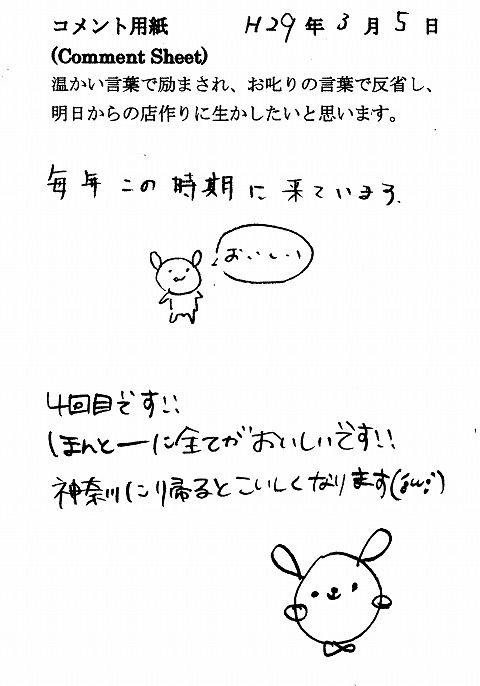 コメント用紙 H29年3月5日
(Comment Sheet)
温かい言葉で励まされ、お叱りの言葉で反省し、
明日からの店作りに生かしたいと思います。
毎年この時期に来ています.
おいしい
4回目です!!
ほんとーに全てがおいしいです!!
神奈川に帰るとこいしくなります